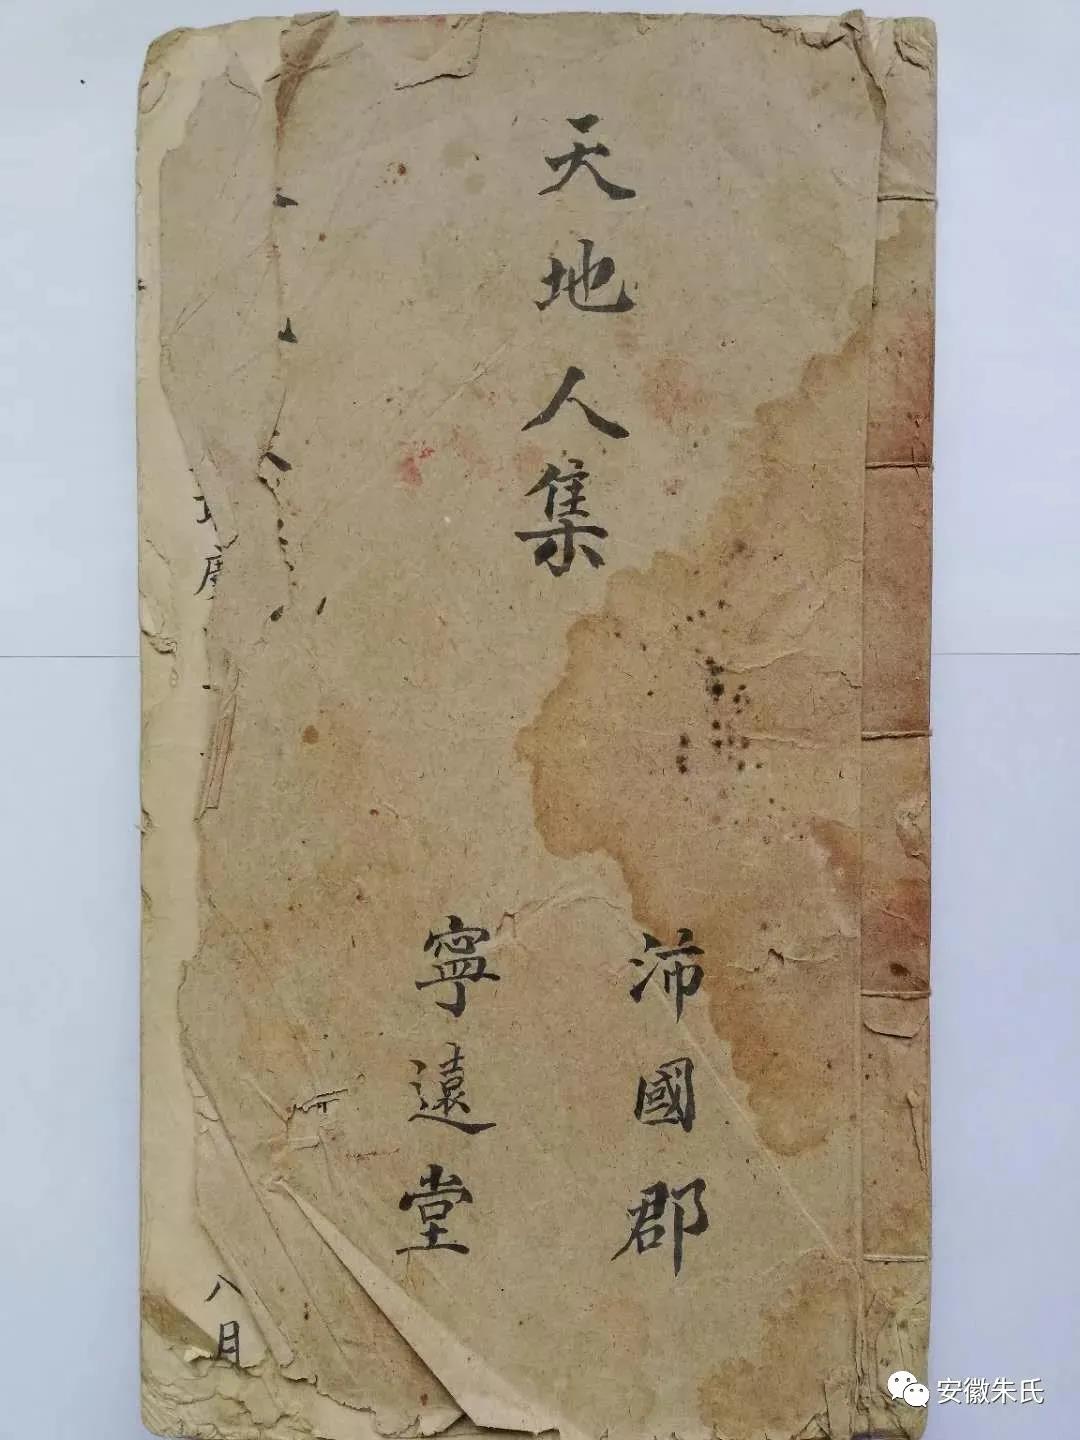 天地人集
沛國郡
寧遠堂
八月
安徽朱氏